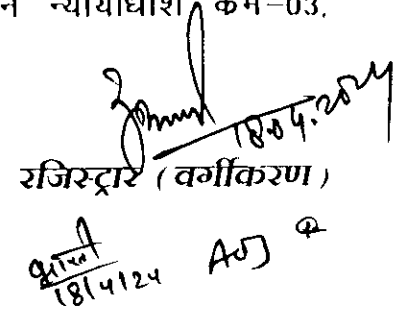 न्यायाधीश क्रम-03.
18.04.2024
रजिस्ट्रार (वर्गीकरण)
भारती
18/4/24 ADJ